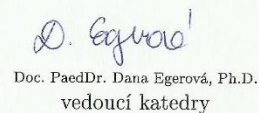 D. Egerová
Doc. PaedDr. Dana Egerová, Ph.D.
vedoucí katedry